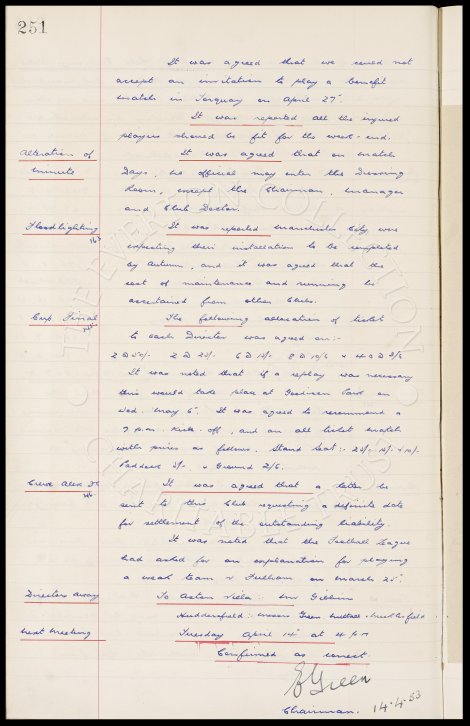 251
It was agreed that we could not
accept an invitation to play a benefit
match in Torquay on April 27th.
It was reported all the injured
players should be fit for the week-end.
Alteration of It was agreed that on match
Minute days, no official may enter the Dressing
Room, except the Chairman, Manager
and Club Doctor.
Floodlighting It was reported Manchester City were
163 expecting their installation to be completed
by Autumn, and it was agreed that the
cost of maintenance and running be
ascertained from other clubs.
Cup Final The following allocation of tickets
to each Director was agreed on:-
2 @ 50/- 2 @ 25/- 6 @ 15/- 8 @ 10/6 & 40 @ 3/6
It was noted that if a replay was necessary
this would take place at Goodison Park on
Wed. May 6th. It was agreed to recommend a
7 p.m. Kick-off, and an all ticket match
with prices as follows. Stand Seat:-
Paddock 5/- & Ground 2/6.
Crewe Alex FC It was agreed that a letter be
sent to this Club requesting a definite date
for settlement of the outstanding liability.
It was noted that the Football League
had asked for an explanation for playing
a weak team v Fulham on March 25th
Directors away To Aston Villa:- Mr
Huddersfield: Messrs Green
Next Meeting Tuesday April 14th at 4 p.m
Confirmed as correct.
E Green
Chairman. 14.4.53
THE EVERTON COLLECTION
CHARITABLE TRUST